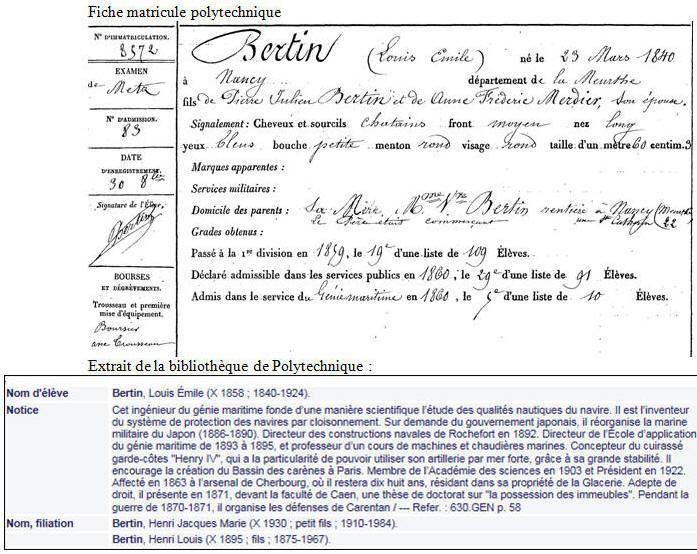 Fiche matricule polytechnique
N° D'IMMATRICULATION.
8572
EXAMEN
de Metz
N° D'ADMISSION.
83
DATE
D'ENREGISTREMENT.
30 8bre
Signature de l'Élève.
Bertin
BOURSES
ET DÉGRÈVEMENTS.
Trousseau et première
mise d'équipement.
Boursier
avec Trousseau
Bertin (Louis Emile) né le 23 Mars 1840
à Nancy département de la Meurthe
fils de Pierre Julien Bertin et de Anne Fréderie Merdier, son épouse.
Signalement : Cheveux et sourcils chatains front moyen nez long
yeux bleus bouche petite menton rond visage rond taille d'un mètre 60 centim. 3
Marques apparentes :
Services militaires :
Domicile des parents : Sa Mère, Mme Vve Bertin rentière à Nancy (Meurthe)
Le Père était commerçant 22
Grades obtenus :
Passé à la 1re division en 1859, le 19e d'une liste de 109 Élèves.
Déclaré admissible dans les services publics en 1860, le 29e d'une liste de 91 Élèves.
Admis dans le service du Génie maritime en 1860, le 5e d'une liste de 10 Élèves.
Extrait de la bibliothèque de Polytechnique :
Nom d'élève Bertin, Louis Émile (X 1858 ; 1840-1924).
Notice Cet ingénieur du génie maritime fonde d'une manière scientifique l'étude des qualités nautiques du navire. Il est l'inventeur
du système de protection des navires par cloisonnement. Sur demande du gouvernement japonais, il réorganise la marine
militaire du Japon (1886-1890). Directeur des constructions navales de Rochefort en 1892. Directeur de l'École d'application
du génie maritime de 1893 à 1895, et professeur d'un cours de machines et chaudières marines. Concepteur du cuirassé
garde-côtes "Henry IV", qui a la particularité de pouvoir utiliser son artillerie par mer forte, grâce à sa grande stabilité. Il
encourage la création du Bassin des carènes à Paris. Membre de l'Académie des sciences en 1903 et Président en 1922.
Affecté en 1863 à l'arsenal de Cherbourg, où il restera dix huit ans, résidant dans sa propriété de la Glacerie. Adepte de
droit, il présente en 1871, devant la faculté de Caen, une thèse de doctorat sur "la possession des immeubles". Pendant la
guerre de 1870-1871, il organise les défenses de Carentan / --- Refer. : 630.GEN p. 58
Nom, filiation Bertin, Henri Jacques Marie (X 1930 ; petit fils ; 1910-1984).
Bertin, Henri Louis (X 1895 ; fils ; 1875-1967).